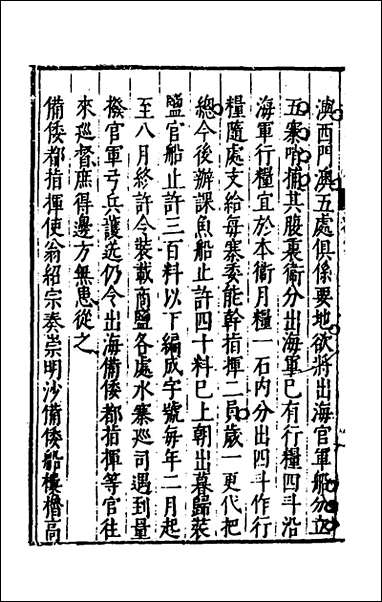 澳西門澳五處俱係要地欲將出海官軍船分立
五寨哨捕其腹裏衛分出海軍已有行糧四斗沿
海軍行糧宜於本衛月糧一石內分出四斗作行
糧隨處支給每寨委能幹指揮二員歲一更代把
總今後辦課魚船止許四十料已上朝出暮歸裝
鹽官船止許三百料以下編成字號每年二月起
至八月終許令裝載商鹽各處水寨巡司遇到量
撥官軍弓兵護送仍令出海備倭都指揮等官往
來巡督庶得邊方無患從之
備倭都指揮使翁紹宗奏崇明沙備倭船櫓高